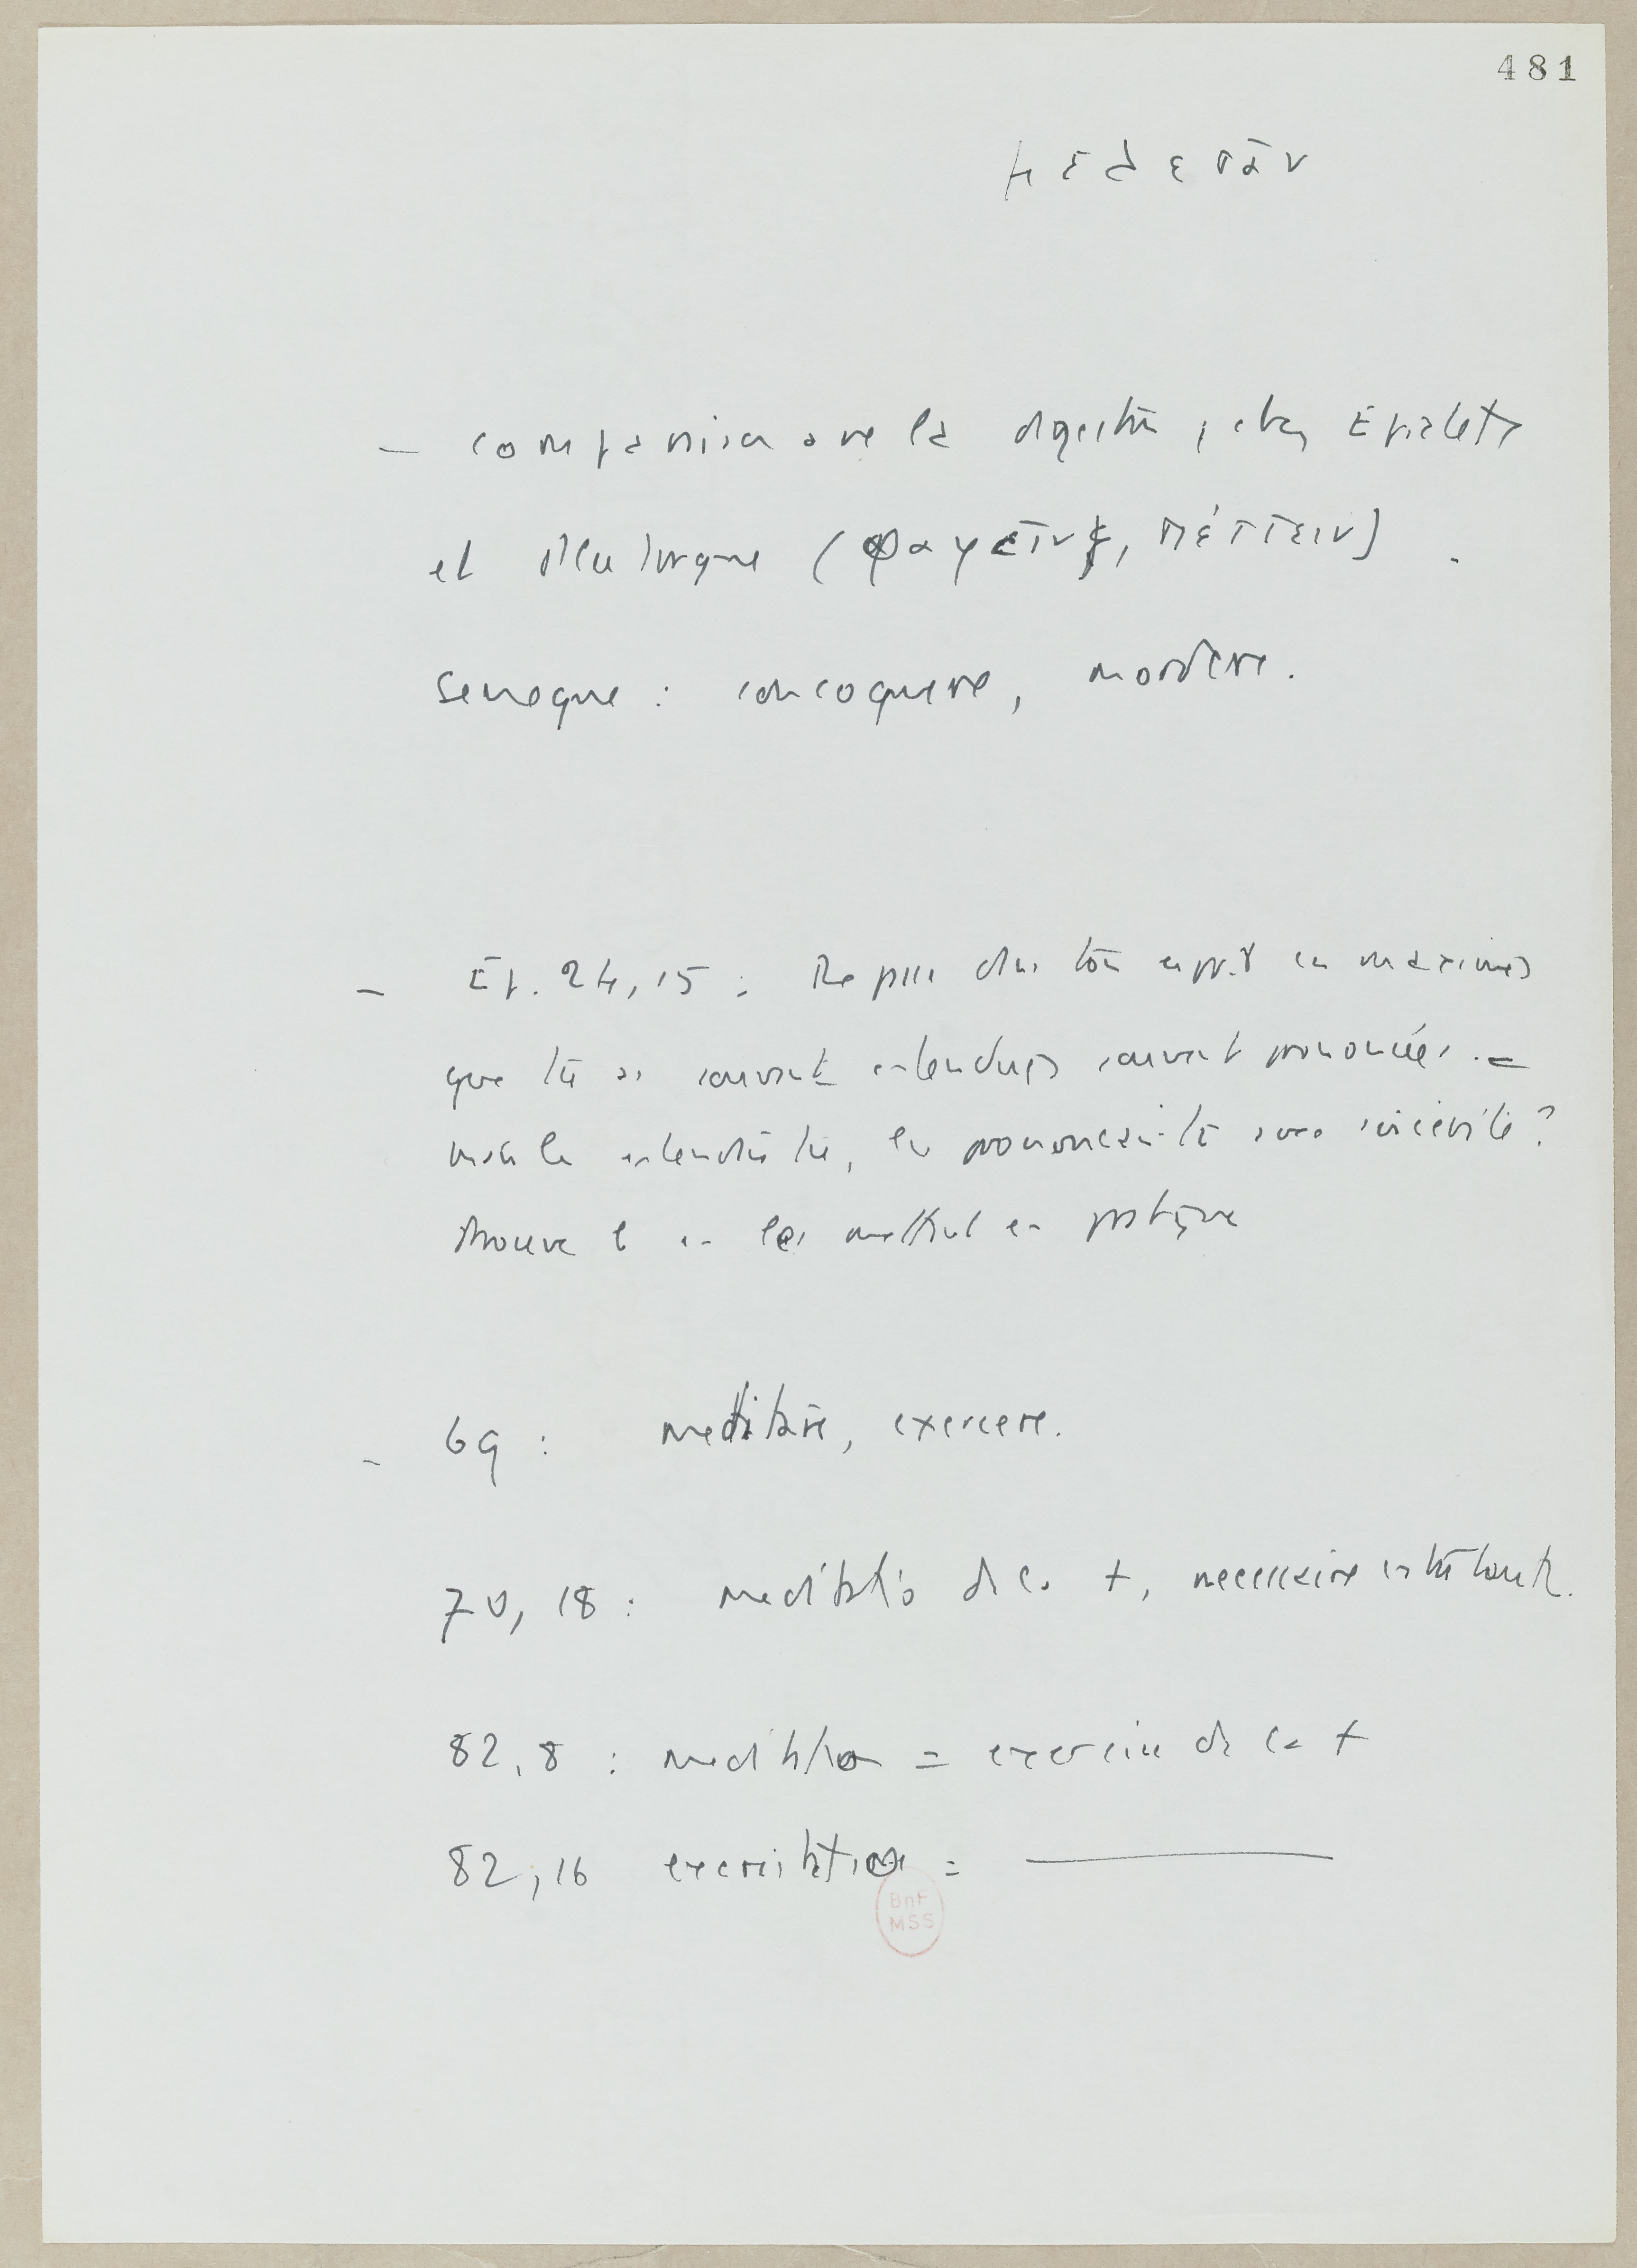 481
μελετᾶν
– comparaison avec la digestion, chez Épictète
et Plutarque (φαγεῖν, πέττειν).
Seneque : concoquere, mordere.
– Ep. 24, 15 : Repasse dans ton esprit ces maximes
que tu as souvent entendues souvent prononcées. –
mais les entendais tu, les prononçais-tu avec sincérité ?
Prouve le en les mettant en pratique
– 69 : meditare, exercere.
70, 18 : meditatio de la +, necessaire entre toutes.
82, 8 : meditation = exercice de la +
82, 16 exercitation = ———
BnF
MSS